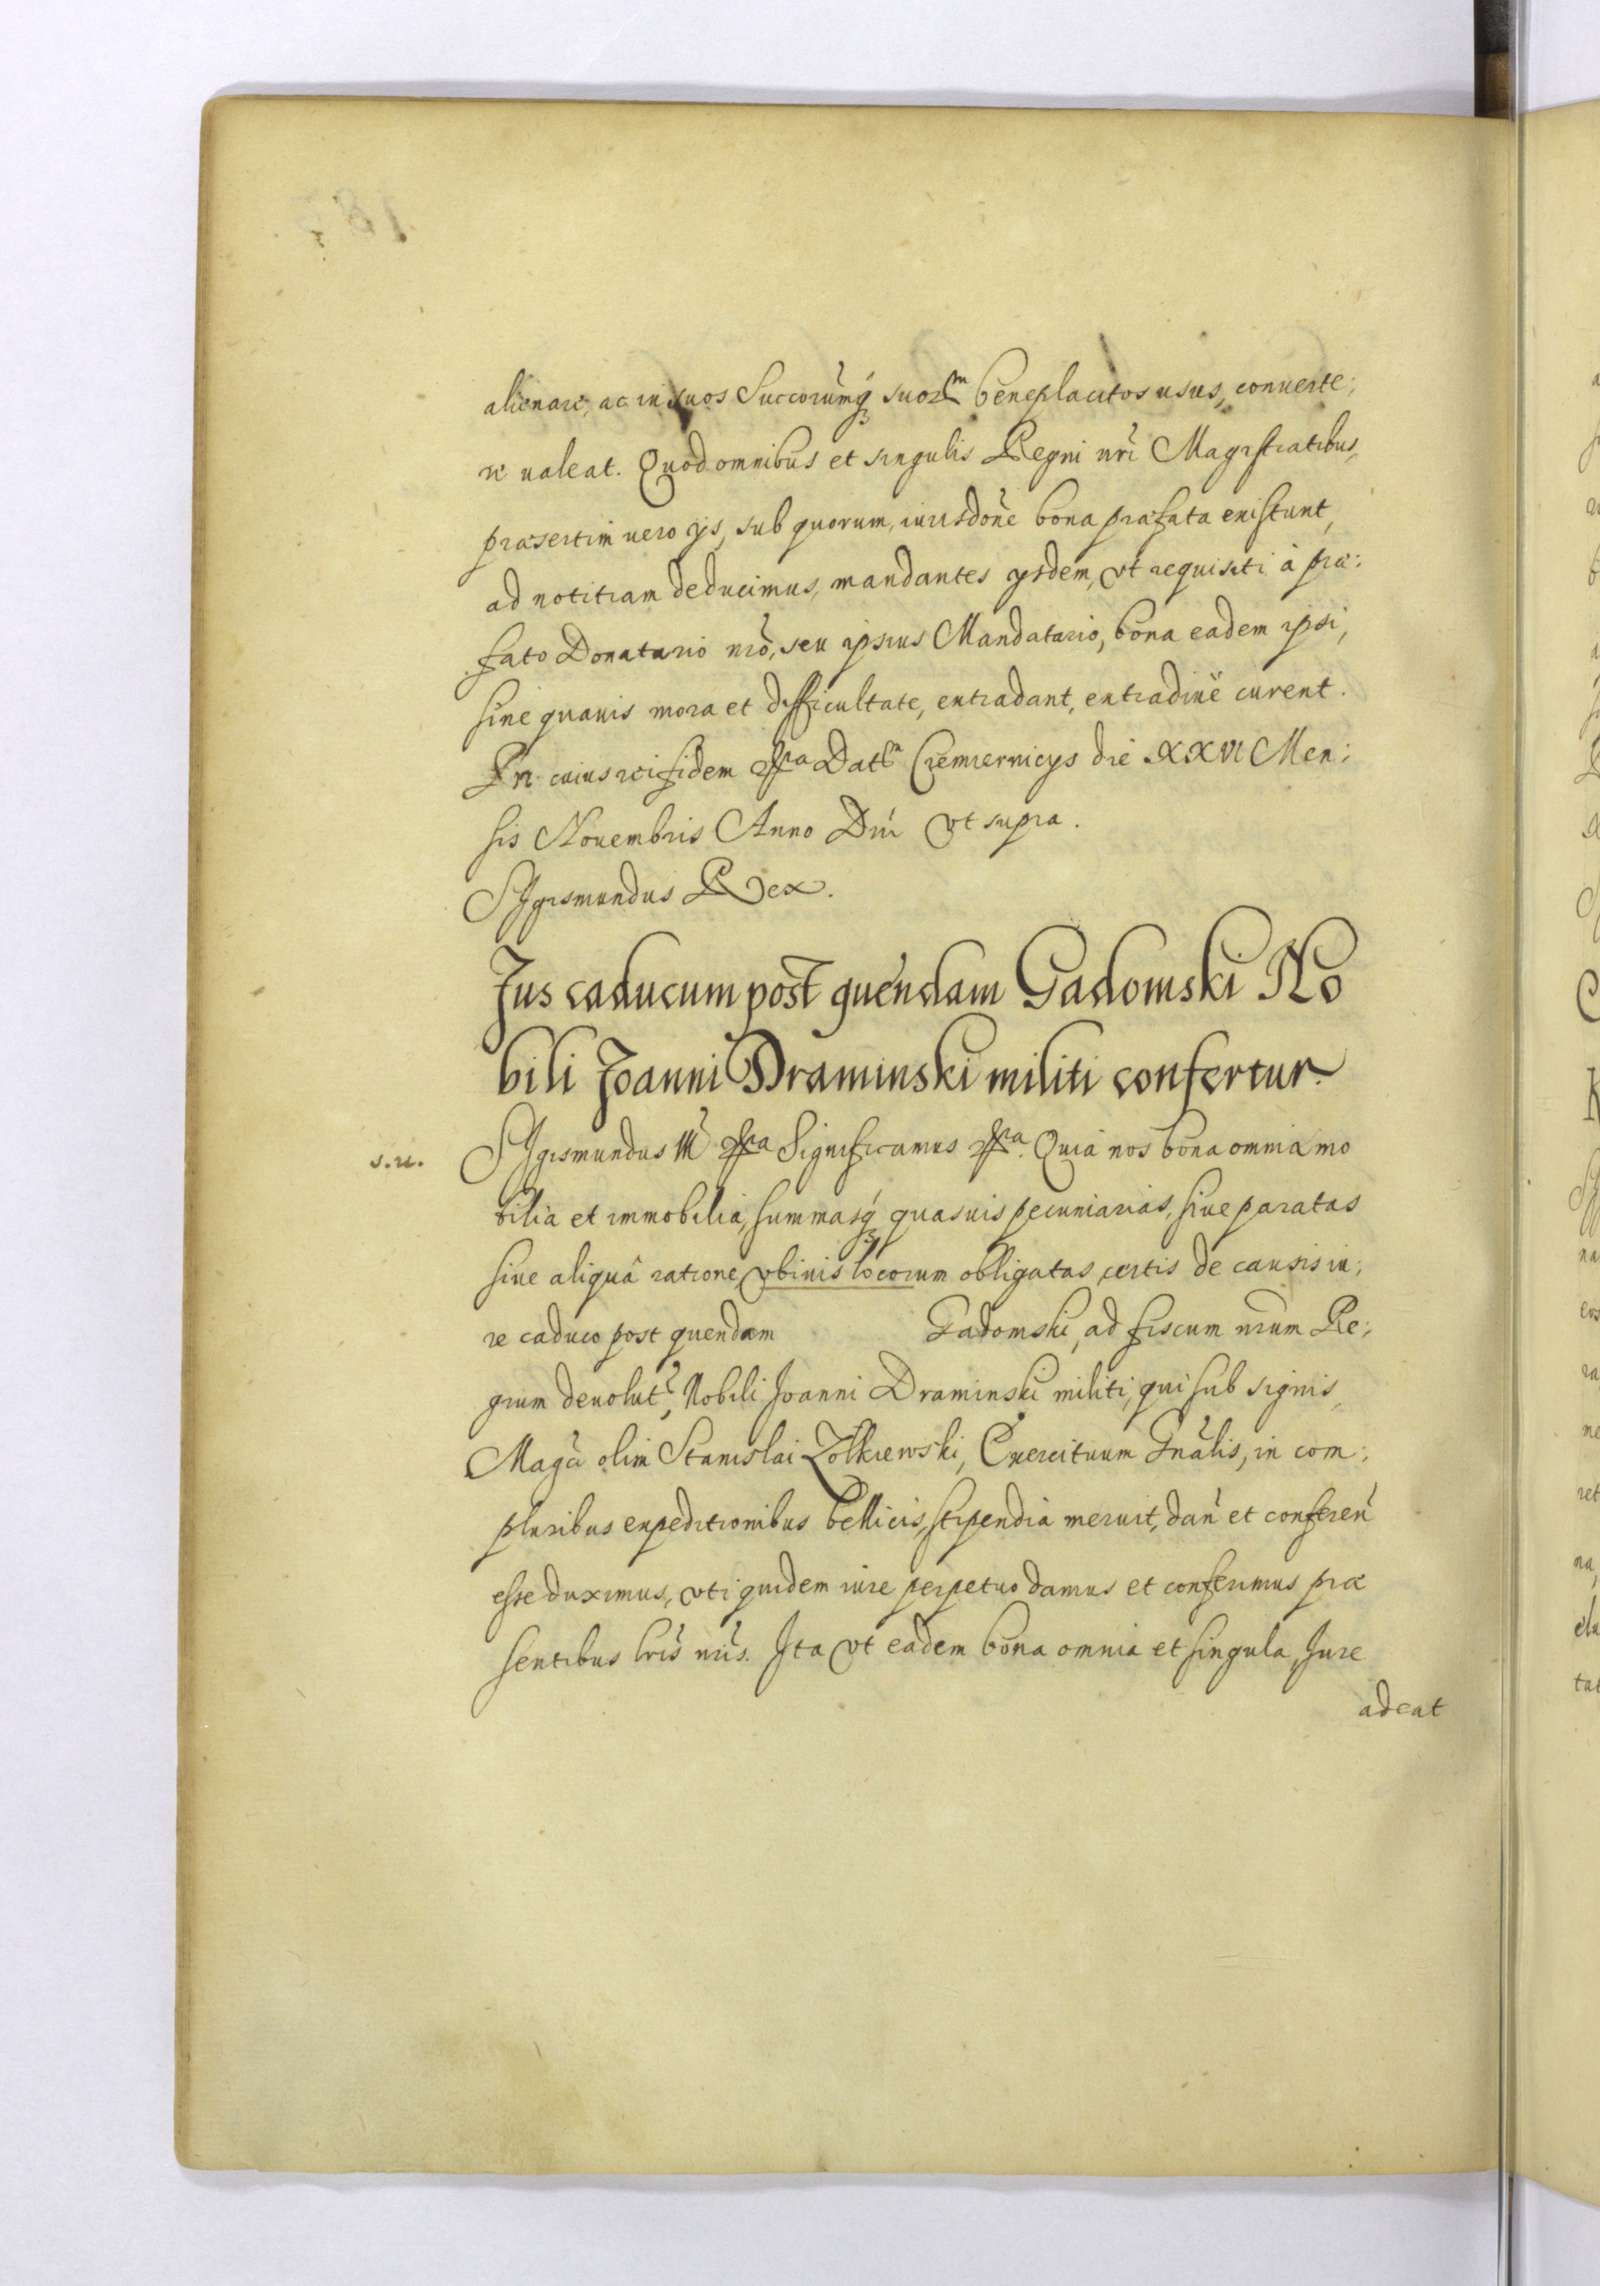 alienare, ac in suos Succorumq́ suor[um] beneplacitos usus, conuerte;
re ualeat. Quod omnibus et singulis Regni nr̃i Magistratibus,
præsertim uero ijs, sub quorum, iurisdõne bona præfata existunt,
ad notitiam deducimus, mandantes ijsdem, vt requisiti à præ:
fato Donatario nr̃o, seu ipsius Mandatario, bona eadem ipsi,
sine quauis mora et difficultate, extradant, extradiq̃ curent.
In cuius rei fidem &ca Datt Cremiernicijs die XXVI Men:
sis Nouembris Anno Dnĩ vt supra.
SIgismundus Rex.
Jus caducum post quendam Gadomski No
bili Joanni Draminski militi confertur.
s. u.
SIgismundus III &ca Significamus &ca. Quia nos bona omnia mo
bilia et immobilia, summasq́ quasuis pecuniarias, siue paratas
siue aliquâ ratione, vbiuis locorum obligatas certis de causis iu;
re caduco post quendam Gadomski, ad fiscum nr̃um Re;
gium deuolut̃, Nobili Joanni Draminski militi, qui sub signis,
Magci olim Stanislai Zołkiewski, Exercituum Gnãlis, in com:
pluribus expeditionibus bellicis, stipendia meruit, dañ et confereñ
esse duximus, vti quidem iure perpetuo damus et conferimus præ
sentibus lr̃is nr̃is. Ita vt eadem bona omnia et singula, Jure
adeat